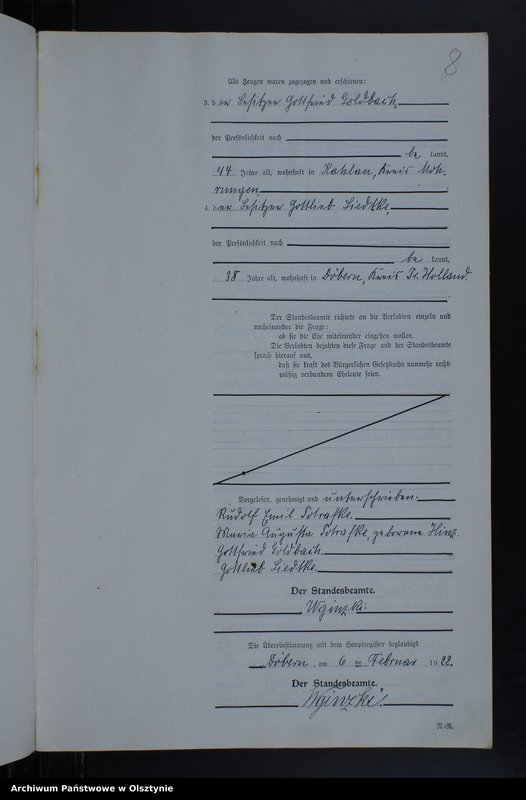 8
Als Zeugen waren zugezogen und erschienen:
3. der Besitzer Gottfried Goldbach,
der Persönlichkeit nach
be kannt,
44 Jahre alt, wohnhaft in Kahlau, Kreis Moh-
rungen
4. der Besitzer Gottlieb Liedtke,
der Persönlichkeit nach
be kannt,
38 Jahre alt, wohnhaft in Döbern, Kreis Pr. Holland.
Der Standesbeamte richtete an die Verlobten einzeln und
nacheinander die Frage:
ob sie die Ehe miteinander eingehen wollen.
Die Verlobten bejahten diese Frage und der Standesbeamte
sprach hierauf aus,
daß sie kraft des Bürgerlichen Gesetzbuchs nunmehr recht-
mäßig verbundene Eheleute seien.
Vorgelesen, genehmigt und unterschrieben.
Rudolf Emil Potrafke.
Maria Augusta Potrafke, geborene Hinz.
Gottfried Goldbach.
Gottlieb Liedtke.
Der Standesbeamte.
Die Übereinstimmung mit dem Hauptregister beglaubigt
Döbern, am 6 ten Februar 1922.
Der Standesbeamte.
N.-R.
Archiwum Państwowe w Olsztynie